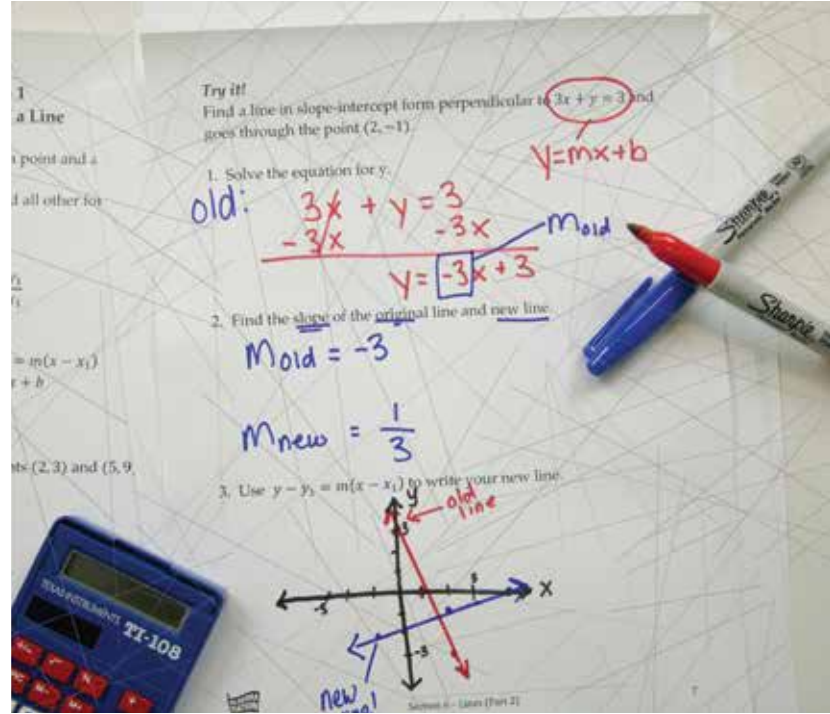 1
a Line
point and a
d all other for
= m(x − x₁)
x + b
nts (2, 3) and (5, 9
Try it!
Find a line in slope-intercept form perpendicular to 3x + y = 3 and
goes through the point (2, −1).
y=mx+b
1. Solve the equation for y.
old: 3x + y = 3
-3x -3x
Mold
y = -3x + 3
2. Find the slope of the original line and new line.
Mold = -3
Mnew = 1/3
3. Use y − y₁ = m(x − x₁) to write your new line.
y
old
line
3
x
-5
-3
new
Section 6 – Lines (Part 2)
7
Sharpie
Sharpie
TEXAS INSTRUMENTS
TI-108